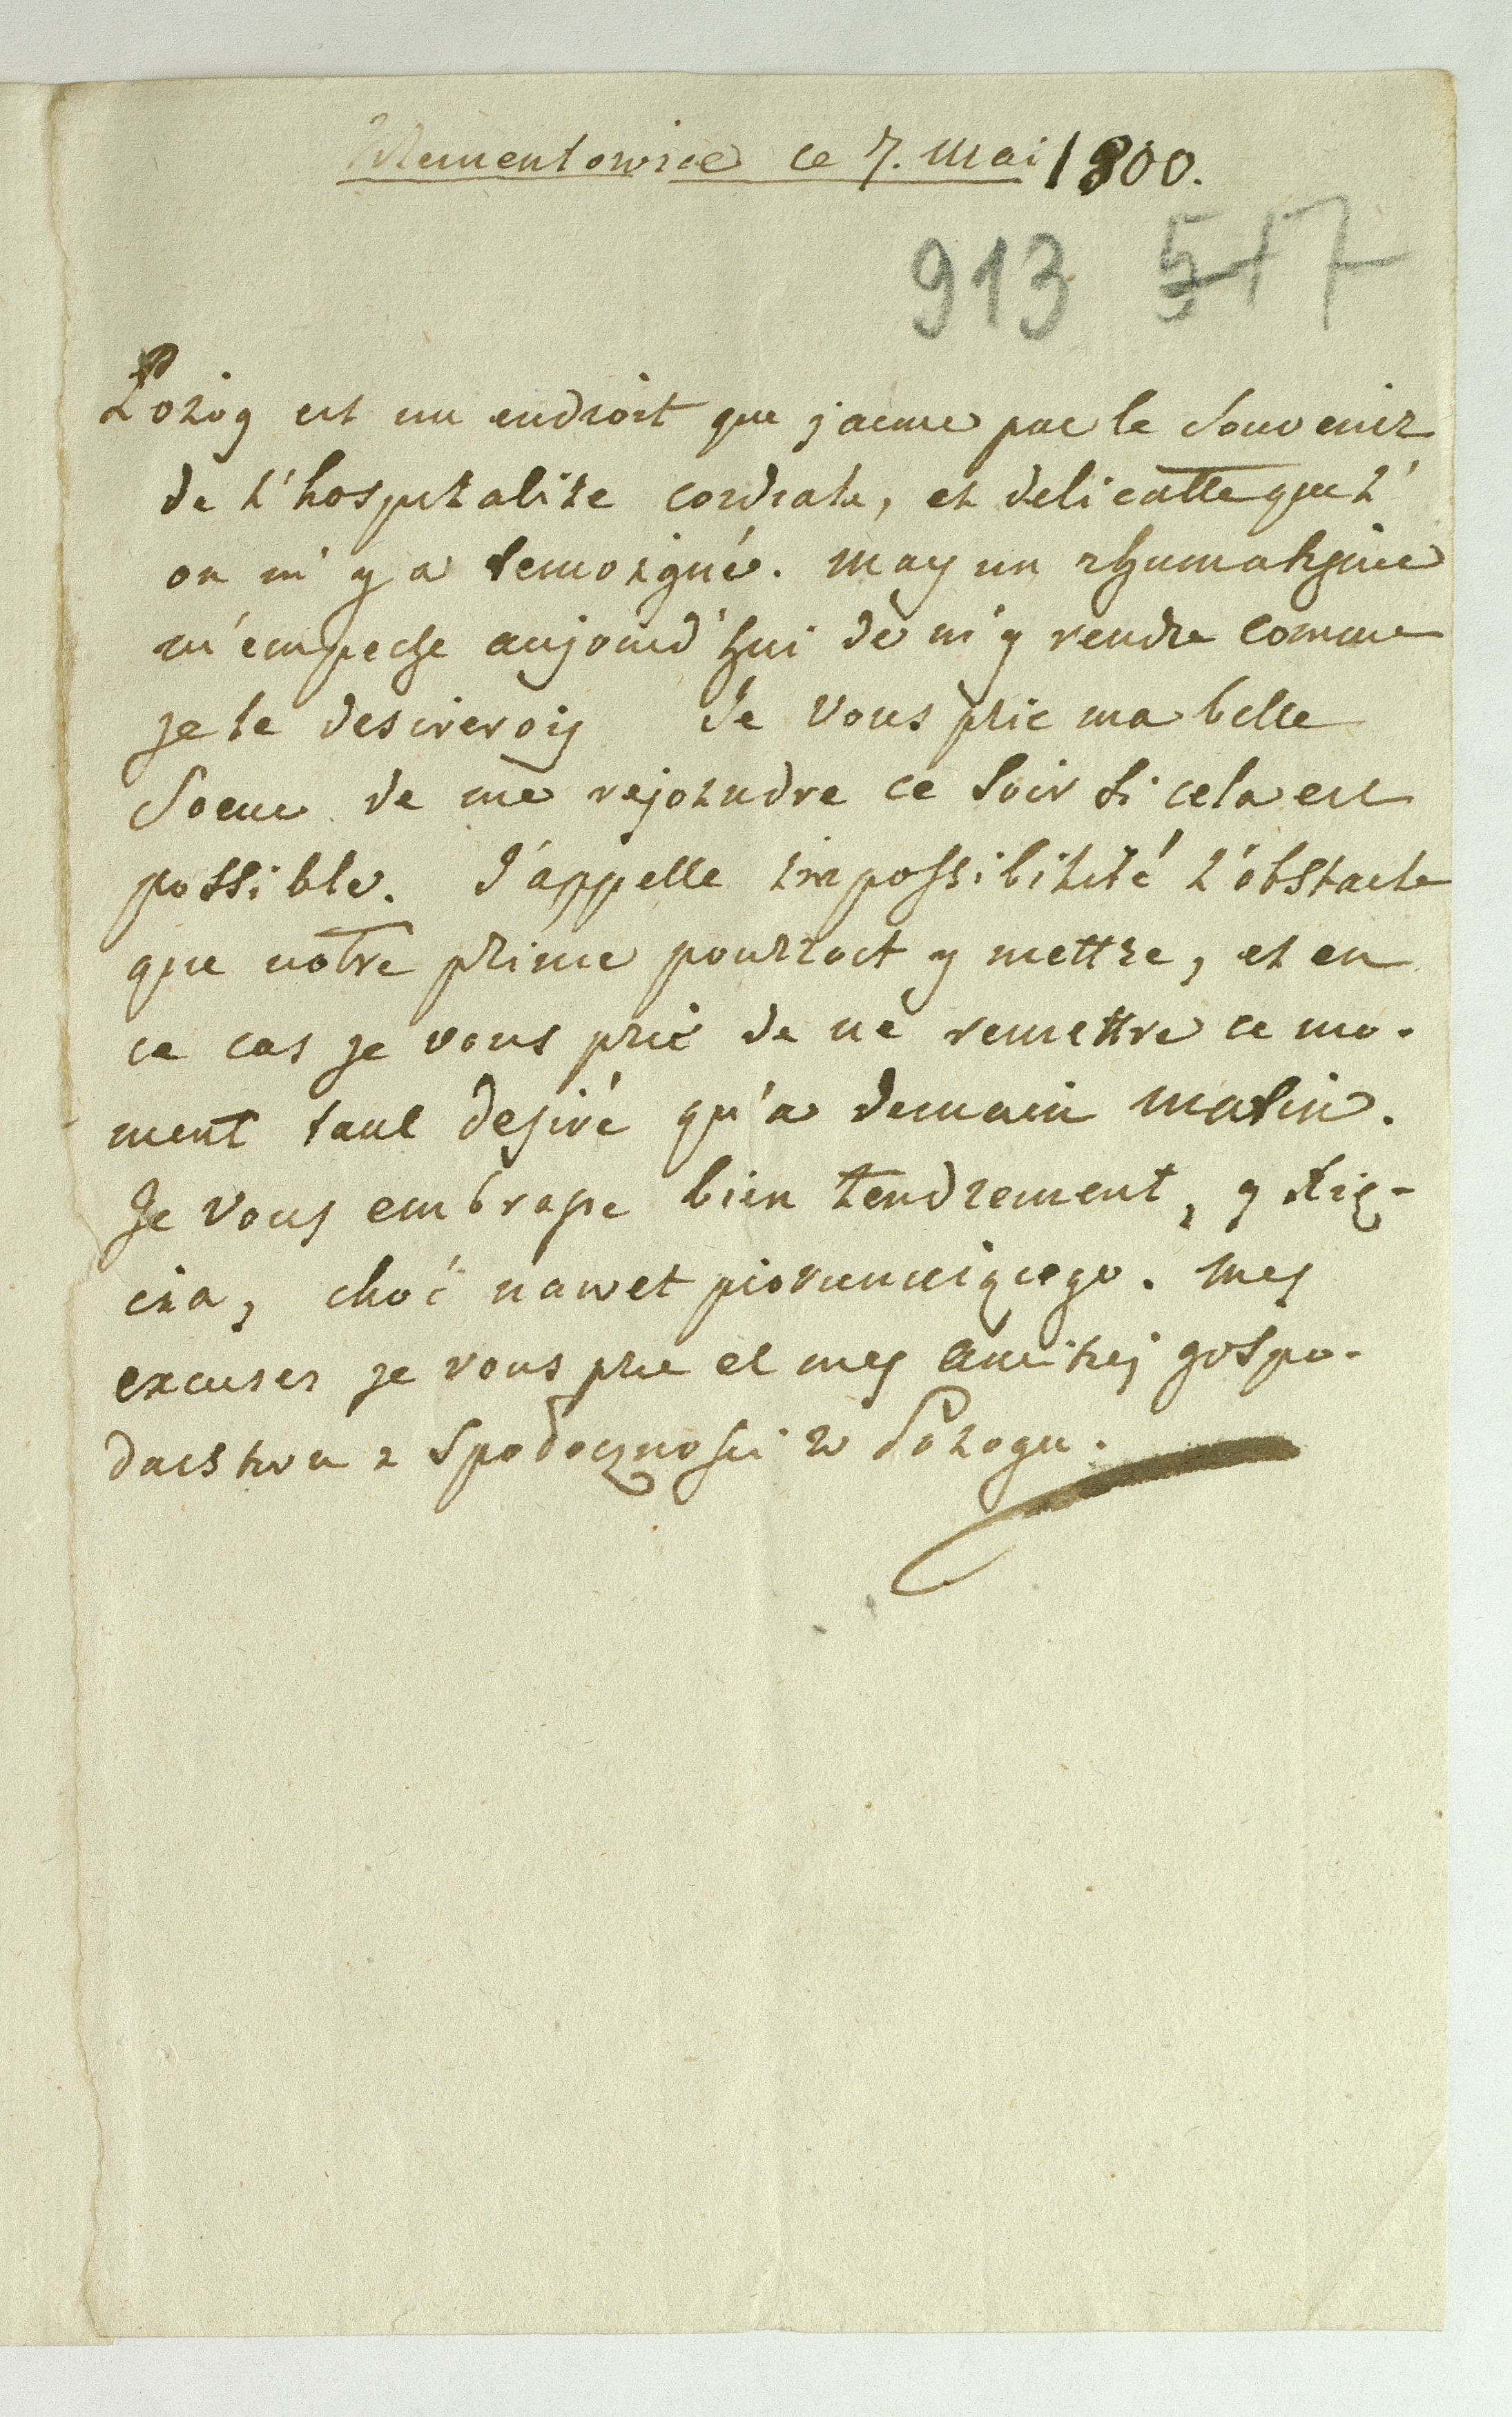 Klementowice ce 7. Mai 1800.
913 517
Pozog est un endroit que j'aime par le Souvenir
de l'hospitalité cordiale, et delicatte que l'
on m'y a temoigné. Mays un rhumatisme
m'empeche aujourd'hui de m'y rendre comme
je le desirerois Je Vous prie ma belle
Soeur de me rejoindre ce Soir Si cela est
possible. J'appelle impossibilité l'obstacle
que notre prince pourroit y mettre, et en
ce cas je vous prie de ne remettre ce mo-
ment tant desiré qu'a demain matin.
Je Vous embrasse bien tendrement, y Xię-
cia, choć nawet piorunuiącego. Mes
excuses je vous prie et mes amitiés gospo-
darstwu z Spodocznosci w Pozogu.